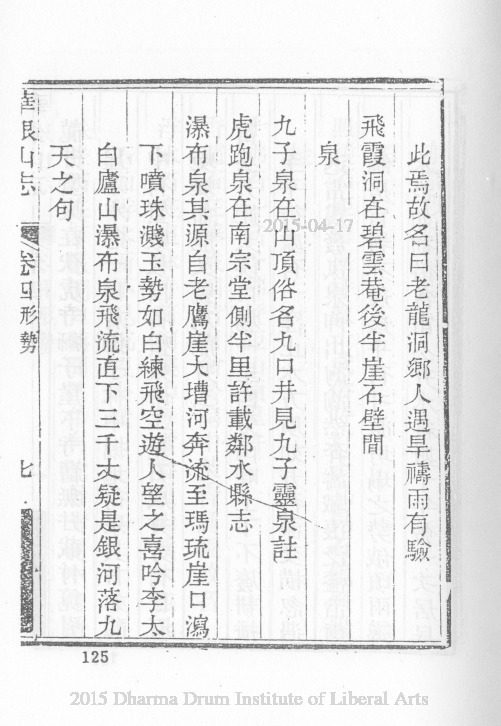 此焉故名曰老龍洞鄉人遇旱禱雨有驗
飛霞洞在碧雲菴後半崖石壁間
泉
九子泉在山頂俗名九口井見九子靈泉註
虎跑泉在南宗堂側半里許載鄰水縣志
瀑布泉其源自老鷹崖大塘河奔流至瑪琉崖口瀉
下噴珠濺玉勢如白練飛空遊人望之喜吟李太
白廬山瀑布泉飛流直下三千丈疑是銀河落九
天之句
華銀山志 卷四形勢 七
125
2015-04-17
2015 Dharma Drum Institute of Liberal Arts